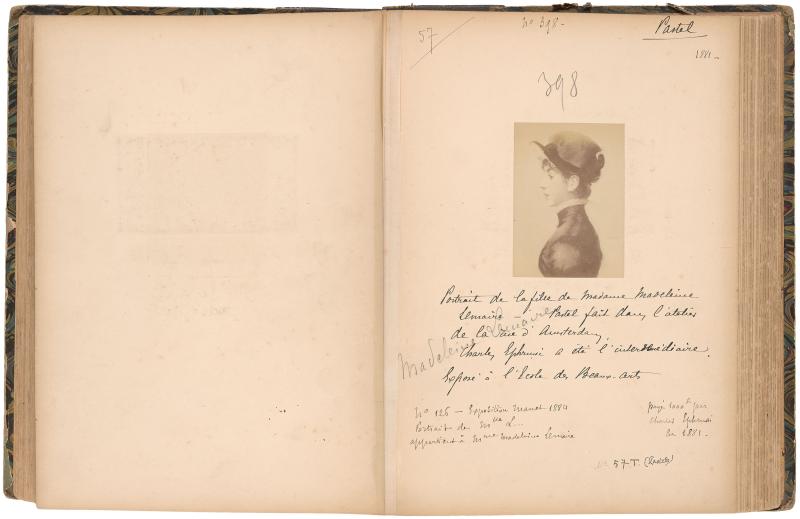 57
No 398-
Pastel
1881-
398
Portrait de la fille de Madame Madeleine
Lemaire - Pastel fait dans l'atelier
de la rue d'Amsterdam,
Madeleine Lemaire
Charles Ephrussi a été l'intermédiaire.
Exposé à l'Ecole des Beaux-arts
No 126 - Exposition Manet 1884
Portrait de Mlle L...
appartient à Mme Madeleine Lemaire
payé 1000f par
Charles Ephrussi
en 1881-
57-T.